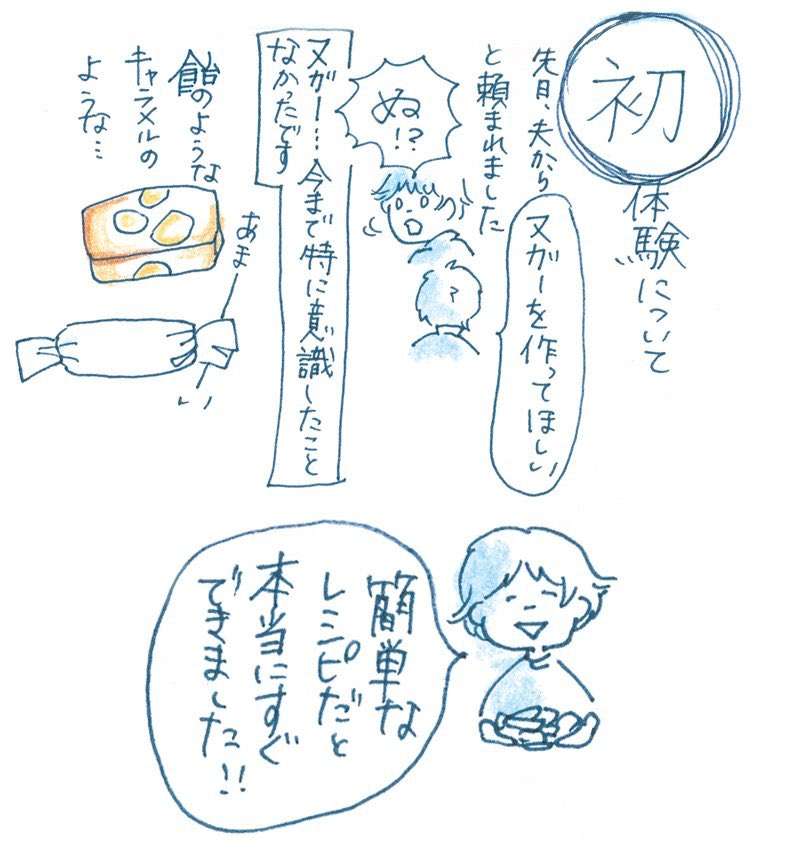 初体験について
先日、夫から
ヌガーを作ってほしい
と頼まれました
ぬ!?
?
ヌガー…今まで特に意識したこと
なかったです
飴のような
キャラメルの
ような…
あまーい
簡単な
レシピだと
本当にすぐ
できました!!